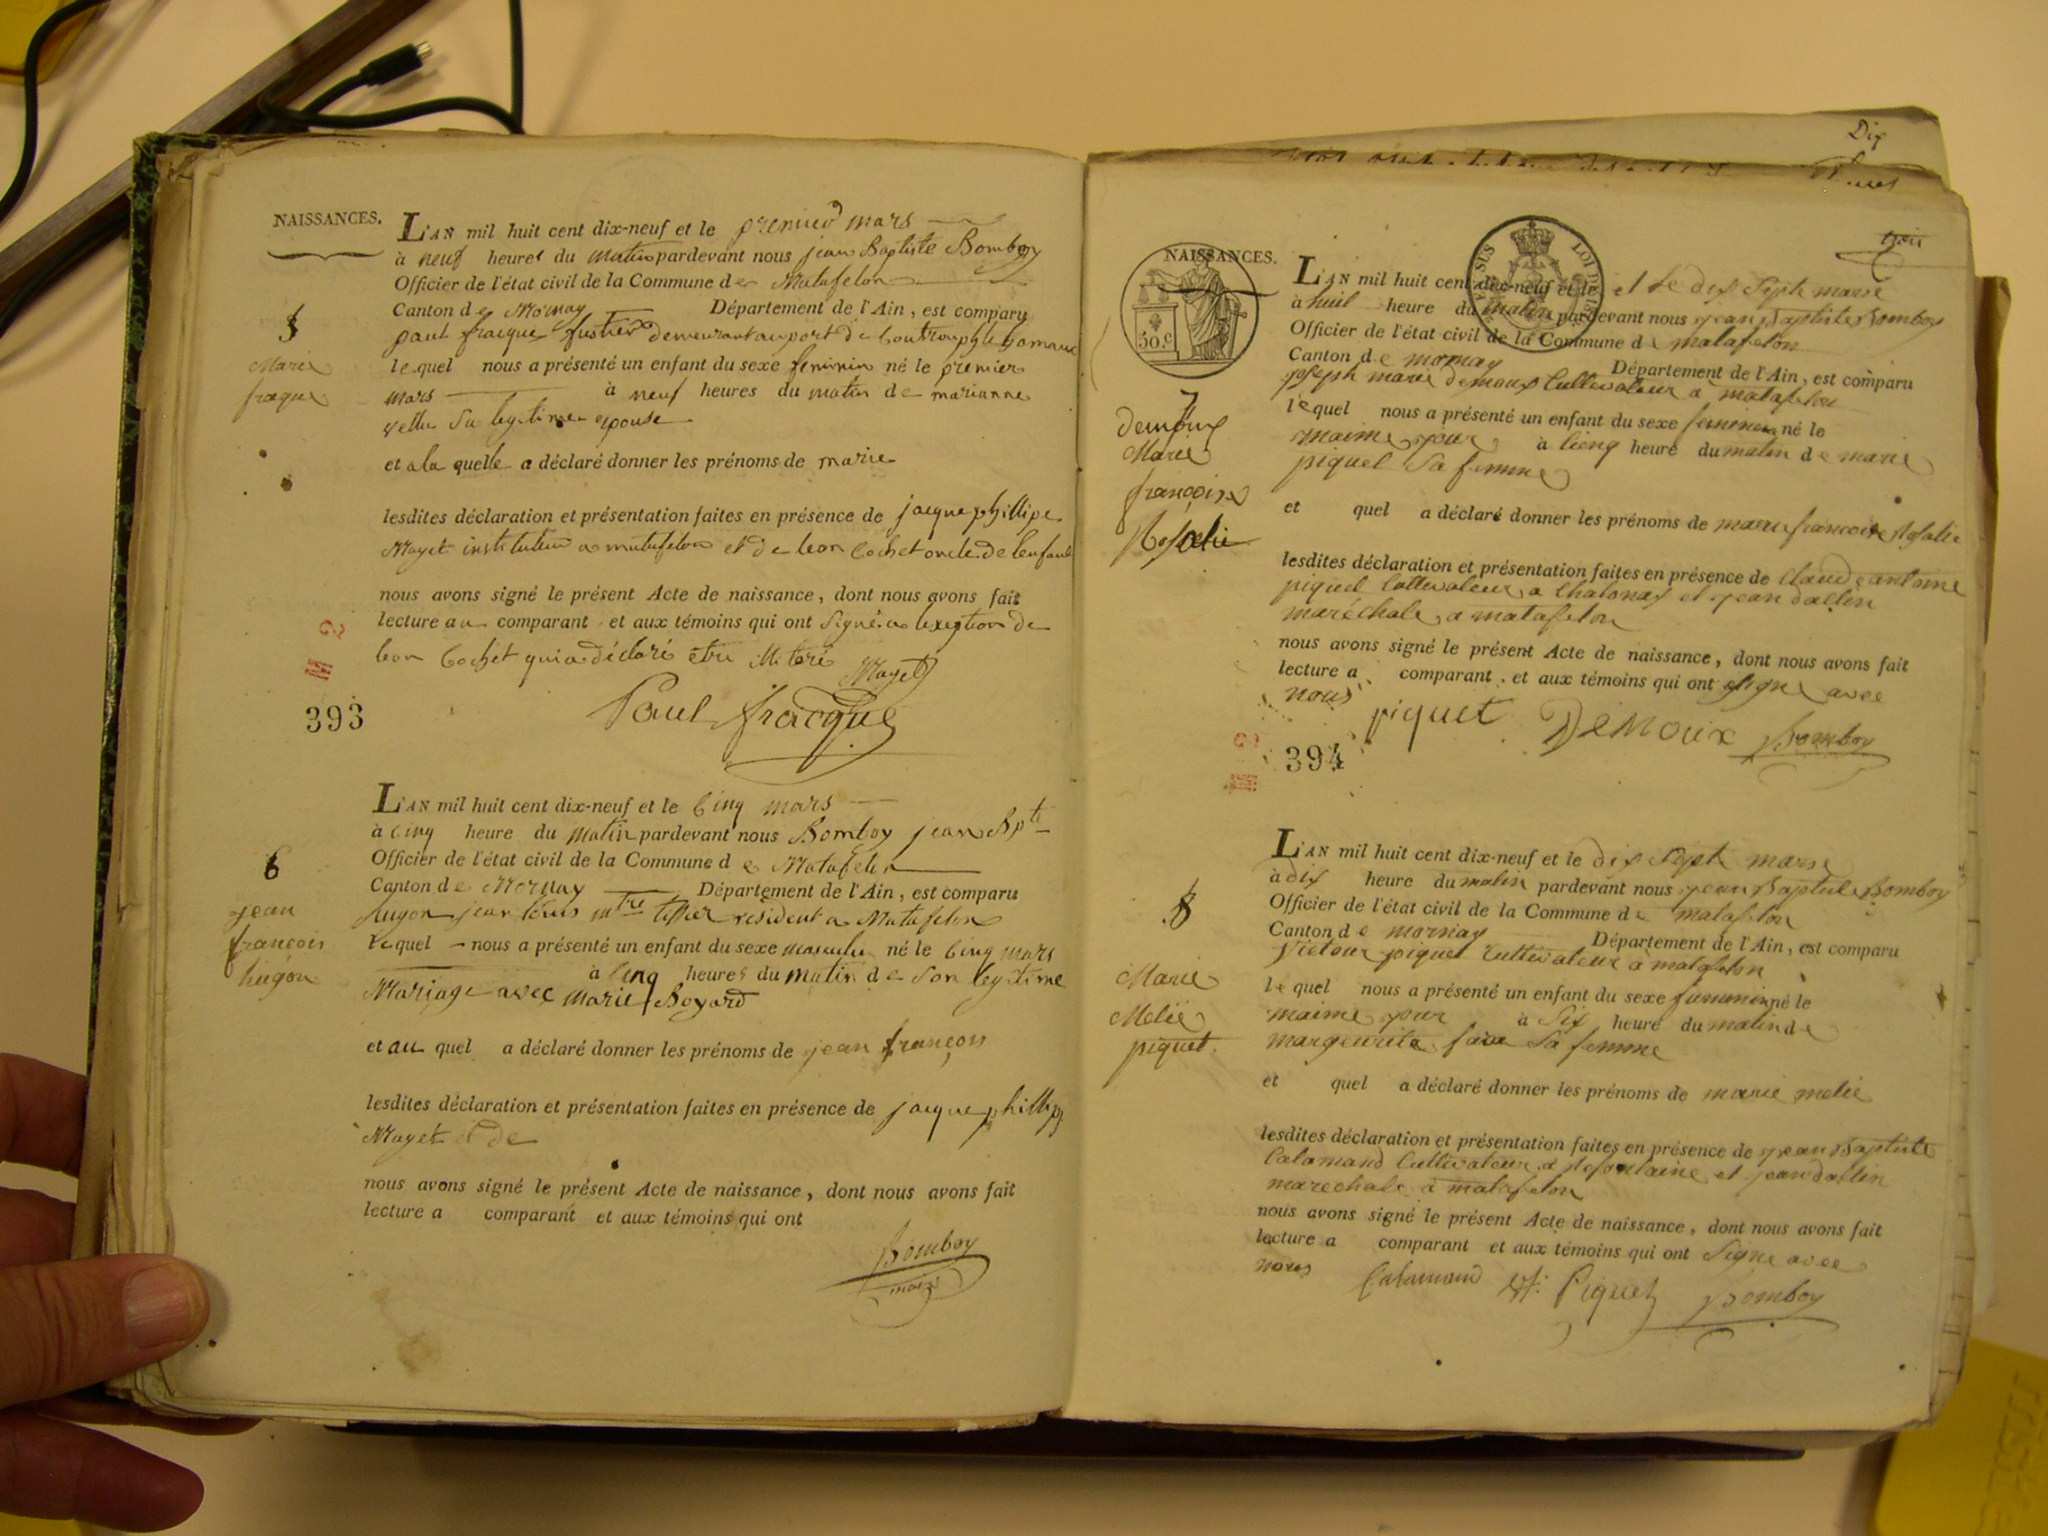 NAISSANCES.
L'AN mil huit cent dix-neuf et le premier mars
à neuf heures du matin pardevant nous jean Baptiste Bomboy
Officier de l'état civil de la Commune de Matafelon
Canton de Mornay Département de l'Ain, est comparu
5
paul fracque demeurant au port de
Marie
fraque
lequel nous a présenté un enfant du sexe feminin né le premier
mars à neuf heures du matin de marianne
sa legitime epouse
et a la quelle a déclaré donner les prénoms de marie
lesdites déclaration et présentation faites en présence de jacque phillipe
Mayet instituteur a matafelon et de leon Cochet oncle de lenfant
nous avons signé le présent Acte de naissance, dont nous avons fait
lecture au comparant et aux témoins qui ont Signé a lexeption de
leon Cochet qui a déclaré etre
Mayet
Paul fracque
393
L'AN mil huit cent dix-neuf et le Cinq mars
à Cinq heure du matin pardevant nous Bomboy jean Bpte
Officier de l'état civil de la Commune de Matafelon
Canton de Mornay Département de l'Ain, est comparu
6
jean
francois
hugon
hugon jean louis mtre resident a Matafelon
lequel nous a présenté un enfant du sexe masculin né le Cinq mars
à Cinq heures du matin de Son legitime
Mariage avec Marie Boyard
et au quel a déclaré donner les prénoms de jean françois
lesdites déclaration et présentation faites en présence de jacque phillip
Mayet et de
nous avons signé le présent Acte de naissance, dont nous avons fait
lecture a comparant et aux témoins qui ont
Bomboy
Dix
trois
NAISSANCES.
50.c
L'AN mil huit cent dix-neuf et le et le dix Sept mars
à huit heure du matin pardevant nous jean Baptiste Bomboy
Officier de l'état civil de la Commune de matafelon
Canton de mornay Département de l'Ain, est comparu
joseph marie demoux Cultivateur a matafelon
7
demoux
Marie
françoise
Rosalie
lequel nous a présenté un enfant du sexe feminin né le
maime jour à Cinq heure du matin de marie
piquet Sa femme
et quel a déclaré donner les prénoms de marie francoise Rosalie
lesdites déclaration et présentation faites en présence de Claude antoine
piquet Cultivateur a Chalonay et jean dallin
maréchale a matafelon
nous avons signé le présent Acte de naissance, dont nous avons fait
lecture a comparant et aux témoins qui ont signe avec
nous
piquet DEMOUX Bomboy
394
L'AN mil huit cent dix-neuf et le dix Sept mars
à dix heure du matin pardevant nous jean Baptiste Bomboy
Officier de l'état civil de la Commune de matafelon
Canton de mornay Département de l'Ain, est comparu
8
Marie
Melie
piquet
Victour piquet Cultivateur a matafelon
lequel nous a présenté un enfant du sexe feminin né le
maime jour à Six heure du matin de
margeurite Sa femme
et quel a déclaré donner les prénoms de marie melie
lesdites déclaration et présentation faites en présence de jean Baptiste
Calamand Cultivateur a et jean dallin
marechale a matafelon
nous avons signé le présent Acte de naissance, dont nous avons fait
lecture a comparant et aux témoins qui ont Signe avec
nous
Calamand Piquet Bomboy